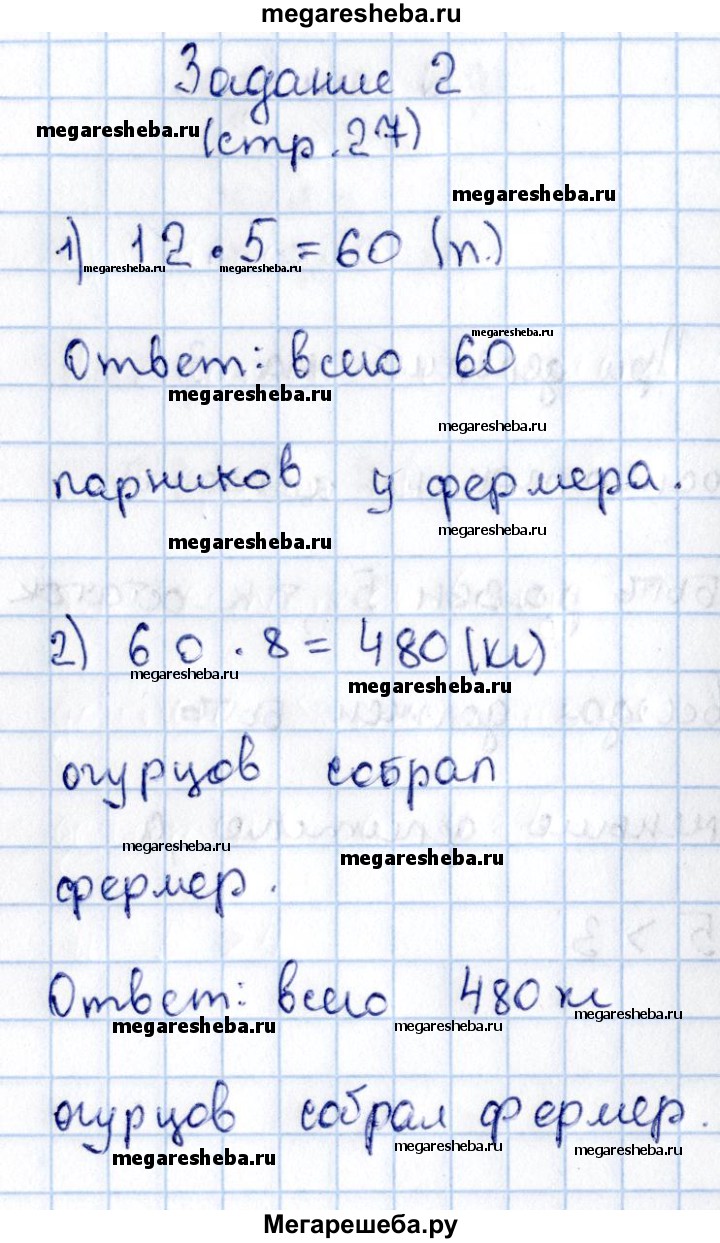 megaresheba.ru
Задание 2
megaresheba.ru
(стр. 27)
megaresheba.ru
1) 12 · 5 = 60 (п.)
megaresheba.ru megaresheba.ru
megaresheba.ru
Ответ: всего 60
megaresheba.ru
megaresheba.ru
парников у фермера.
megaresheba.ru
megaresheba.ru
2) 60 · 8 = 480 (кг)
megaresheba.ru
megaresheba.ru
огурцов собрал
megaresheba.ru
megaresheba.ru
фермер.
Ответ: всего 480 кг
megaresheba.ru megaresheba.ru megaresheba.ru
огурцов собрал фермер.
megaresheba.ru megaresheba.ru megaresheba.ru
Мегарешеба.ру